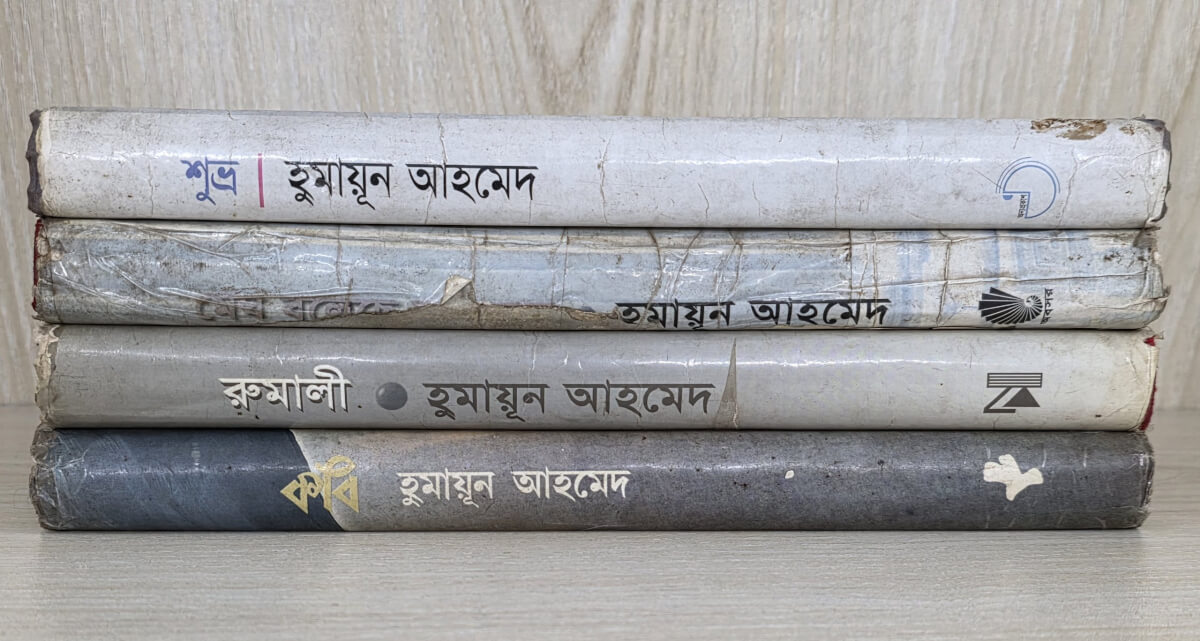 শুভ্র | হুমায়ূন আহমেদ
হুমায়ূন আহমেদ অবসর
রুমালী হুমায়ূন আহমেদ
কবি হুমায়ূন আহমেদ